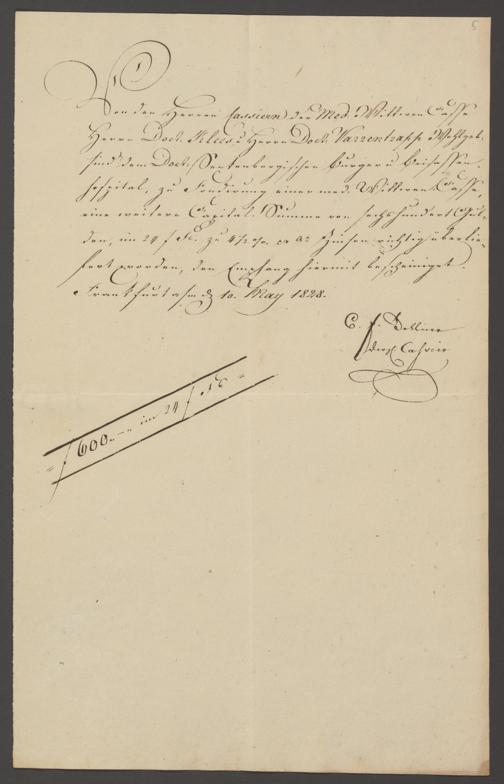 5
Von den Herren Cassiern der Med. Wittwen Casse
Herrn Doct. Kloss u Herrn Doct. Varrentrapp Wohlgeb.
sind dem Doct. Senckenbergischen Burger u Beisassen-
hospital, zu Fundirung einer med. Wittwen Casse,
eine weitere Capital Summe von sechshundert Gul-
den, im 24 f Fs. zu 4 1/2 pro Ct. Zinsen richtig überlie-
fert worden, den Empfang hiermit bescheiniget.
Frankfurt a/m d. 10. May 1828.
C. F.
Cassier
f 600.-- im 24 f Fs.